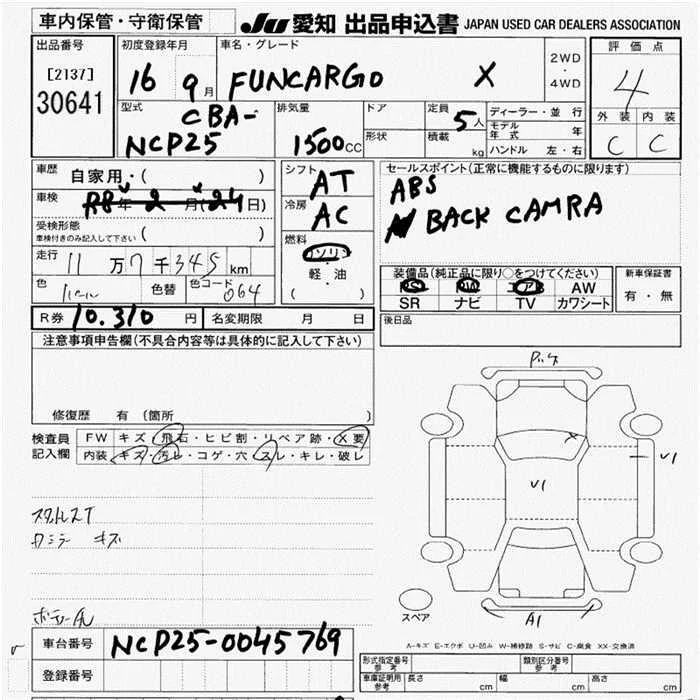 車内保管・守衛保管
JU 愛知 出品申込書 JAPAN USED CAR DEALERS ASSOCIATION
出品番号
[2137]
30641
初度登録年月
16 9月
車名・グレード
FUNCARGO X
2WD
・
4WD
評価点
4
外装 内装
C C
型式
CBA-
NCP25
排気量
1500CC
ドア
形状
定員
5人
積載
kg
ディーラー・並行
モデル年式 年
ハンドル 左・右
車歴
自家用・( )
車検
R8年 2月(24日)
受検形態
車検付きのみ記入して下さい ( )
走行
11万7千345km
色
色替
色コード
064
シフト
AT
冷房
AC
燃料
ガソリン
軽・油
( )
セールスポイント(正常に機能するものに限ります)
ABS
BACK CAMRA
装備品(純正品に限り○をつけてください)
PS PW エアB AW
SR ナビ TV カワシート
新車保証書
有・無
R券 10.310円
名変期限 月 日
後日品
注意事項申告欄(不具合内容等は具体的に記入して下さい)
修復歴 有 (箇所 )
検査員
記入欄
FW キズ・飛石・ヒビ割・リペア跡・X要
内装 キズ・汚レ・コゲ・穴・スレ・キレ・破レ
スタットレスT
ワミラー キズ
V1
V1
X
A1
スペア
A-キズ E-エクボ U-凹み W-補修跡 S-サビ C-腐食 XX-交換済
車台番号 NCP25-0045769
登録番号
形式指定番号
参考
類別区分番号
参考
車庫証明用
参考
長さ cm
幅 cm
高さ cm